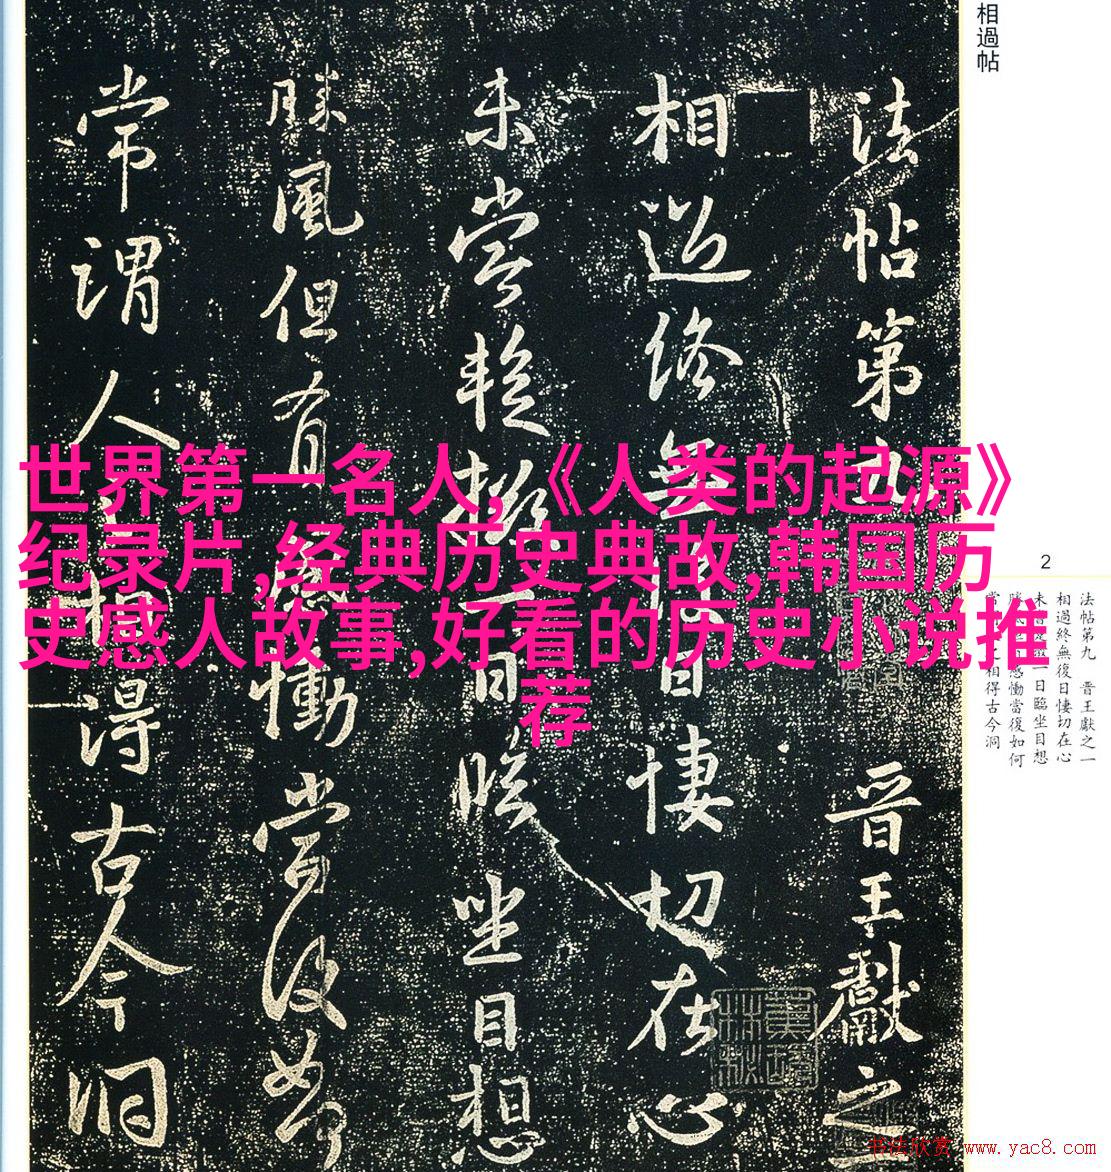 相過帖
法帖第九 晋王獻之
相過終無復日悽切在心
未嘗蹔撥一日臨坐目想
勝風但有感慟當復如
常謂人之相得古今洞
世界第一名人,《人类的起源》
纪录片,经典历史典故,韩国历
史感人故事,好看的历史小说推
荐
2
法帖第九 晋王獻之一
相過終無復日悽切在心
未嘗一日臨坐目想
感慟當復如何
常相得古今洞
书法欣赏 www.yac8.com